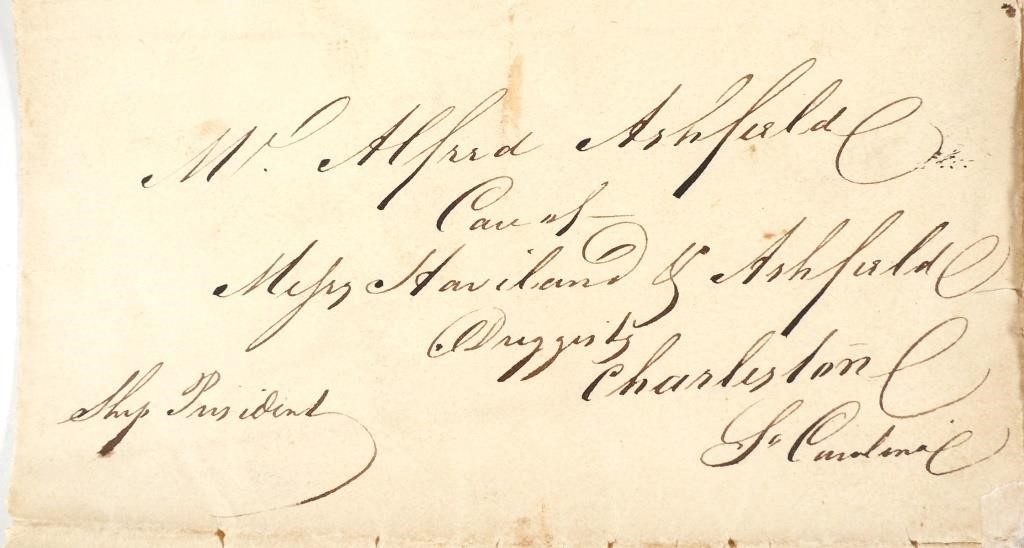 Mr. Alfred Ashfield
Care of
Messrs Haviland & Ashfield
Druggists
Charleston
So Carolina
Ship President